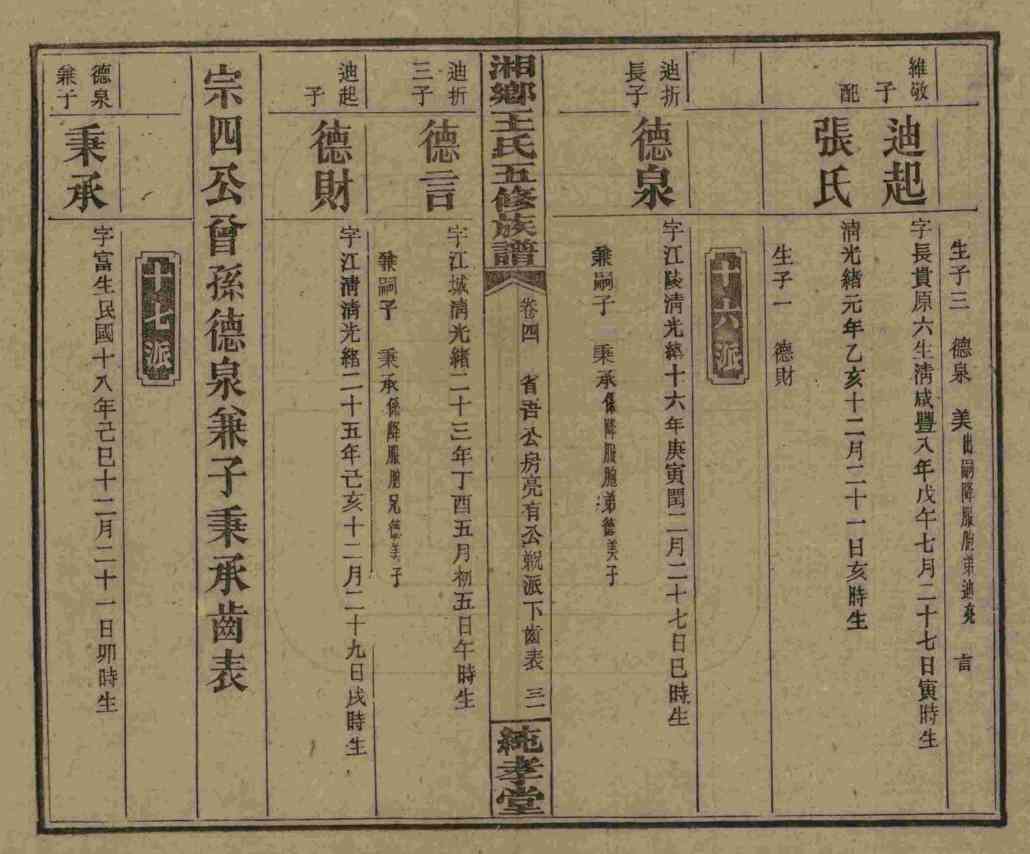 維敬
子
迪起
字長貴原六生淸咸豐八年戊午七月二十七日寅時生
生子三 德泉 美出嗣降服胞弟迪堯 言
配
張氏
清光緒元年乙亥十二月二十一日亥時生
生子一 德財
十六派
迪折
長子
德泉
字江陵淸光緒十六年庚寅閏二月二十七日巳時生
兼嗣子 秉承係降服胞弟德美子
湘鄉王氏五修族譜
卷四 省吾公房亮有公 派下齒表 三一
純孝堂
迪折
三子
德言
字江城淸光緒二十三年丁酉五月初五日午時生
兼嗣子 秉承係降服胞兄德美子
迪起
子
德財
字江清淸光緒二十五年己亥十二月二十九日戌時生
宗四公曾孫德泉兼子秉承齒表
十七派
德泉
兼子
秉承
字富生民國十八年己巳十二月二十一日卯時生